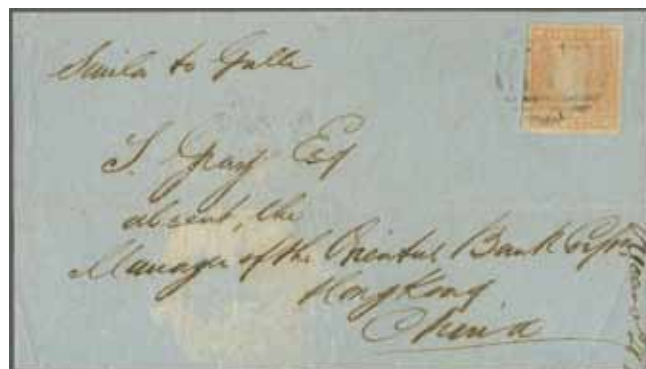 Simla to Galle
T. Gray Esq
absent, the
Manager of the Oriental Bank Corpn
Hong Kong
China